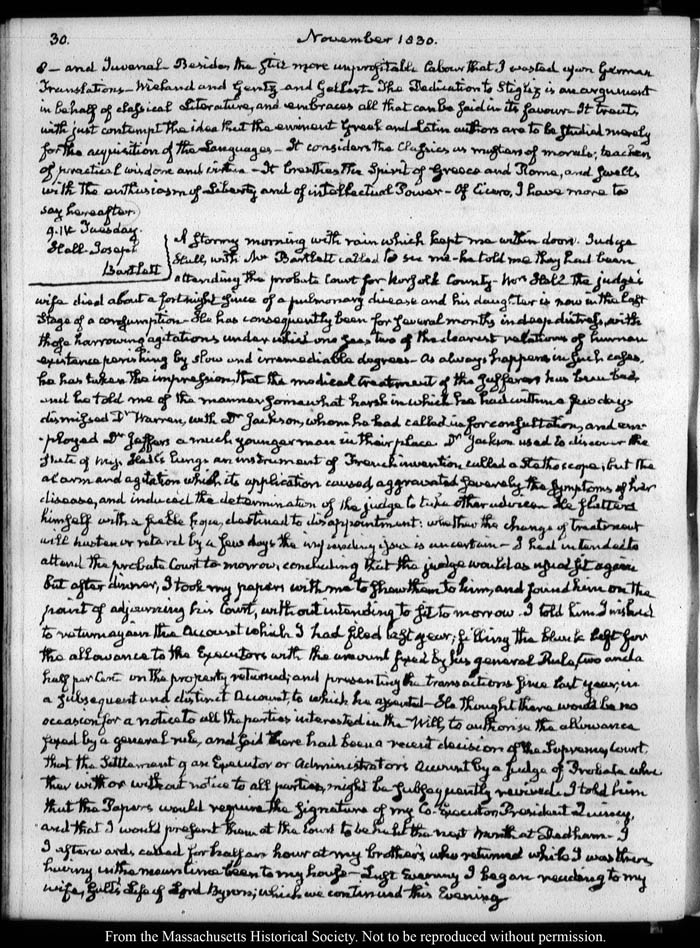 30. November 1830.
8 — and Juvenal — Besides the still more unprofitable labour that I wasted upon German
Translations — Wieland and Gentz and Gellert — The Dedication to Stiglitz is an argument
in behalf of classical Literature, and embraces all that can be said in its favour. It treats
with just contempt the idea that the eminent Greek and Latin authors are to be studied merely
for the acquisition of the Languages — It considers the Classics as masters of morals; teachers
of practical wisdom and virtue — It breathes the Spirit of Greece and Rome, and swells
with the enthusiasm of Liberty and of intellectual Power — Of Cicero, I have more to
say hereafter.
9. IV. Tuesday.
Hall. Joseph
Bartlett
A Stormy morning with rain which kept me within doors. Judge
Hall, with Mr Bartlett called to see me — he told me they had been
attending the probate Court for Norfolk County — Mrs Hall the judge's
wife died about a fortnight since of a pulmonary disease and his daughter is now in the last
stage of a consumption — He has consequently been for several months in deep distress, with
those harrowing agitations under which one sees two of the dearest relations of human
existence perishing by slow and irremediable degrees — As always happens in such cases
he has taken the impression, that the medical treatment of the sufferers has been bad,
and he told me of the manner somewhat harsh in which he had within a few days
dismissed Dr Warren, with Dr Jackson, whom he had called in for consultation, and em-
-ployed Dr Jeffers a much younger man in their place. Dr Jackson used to discover the
state of Miss Hall's lungs an instrument of French invention called a Stethoscope; but the
alarm and agitation which its application caused, aggravated severely the symptoms of her
disease, and induced the determination of the judge to take other advice. He flatters
himself with a feeble hope, destined to disappointment: whether the change of treatment
will hasten or retard by a few days the impending issue is uncertain — I had intended to
attend the probate Court to morrow, concluding that the judge would as usual sit again
but after dinner, I took my papers with me to shew them to him, and found him on the
point of adjourning his Court, without intending to sit to morrow. I told him I wished
to return again the Account which I had filed last year; filling the blank left for
the allowance to the Executors with the amount fixed by his general Rule, two and a
half per Cent on the property returned; and presenting the transactions since last year, in
a subsequent and distinct Account, to which he assented — He thought there would be no
occasion for a notice to all the parties interested in the Will, to authorise the allowance
fixed by a general rule, and said there had been a recent decision of the Supreme Court,
that the Settlement of an Executor or Administrator's Account by a Judge of Probate whe-
ther with or without notice to all parties, might be subsequently revived. I told him
that the Papers would require the signature of my Co-Executor President Quincy,
and that I would present them at the Court to be held the next month at Dedham — I
I afterwards called for half an hour at my brother's who returned while I was there,
having in the meantime been to my house — Last Evening I began reading to my
wife, Galt's Life of Lord Byron; which we continued this Evening
From the Massachusetts Historical Society. Not to be reproduced without permission.